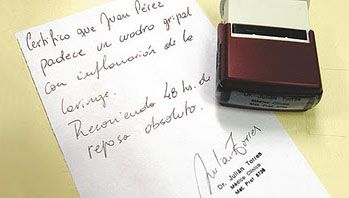 Certifico que Juan Pérez
padece un cuadro gripal
con inflamación de la
laringe.
Recomiendo 48 hs. de
reposo absoluto.
Julián Torres
Dr. Julián Torres
Médico Clínico
Mat. Prof. 5736
Dr. Julián Torres
Médico Clínico